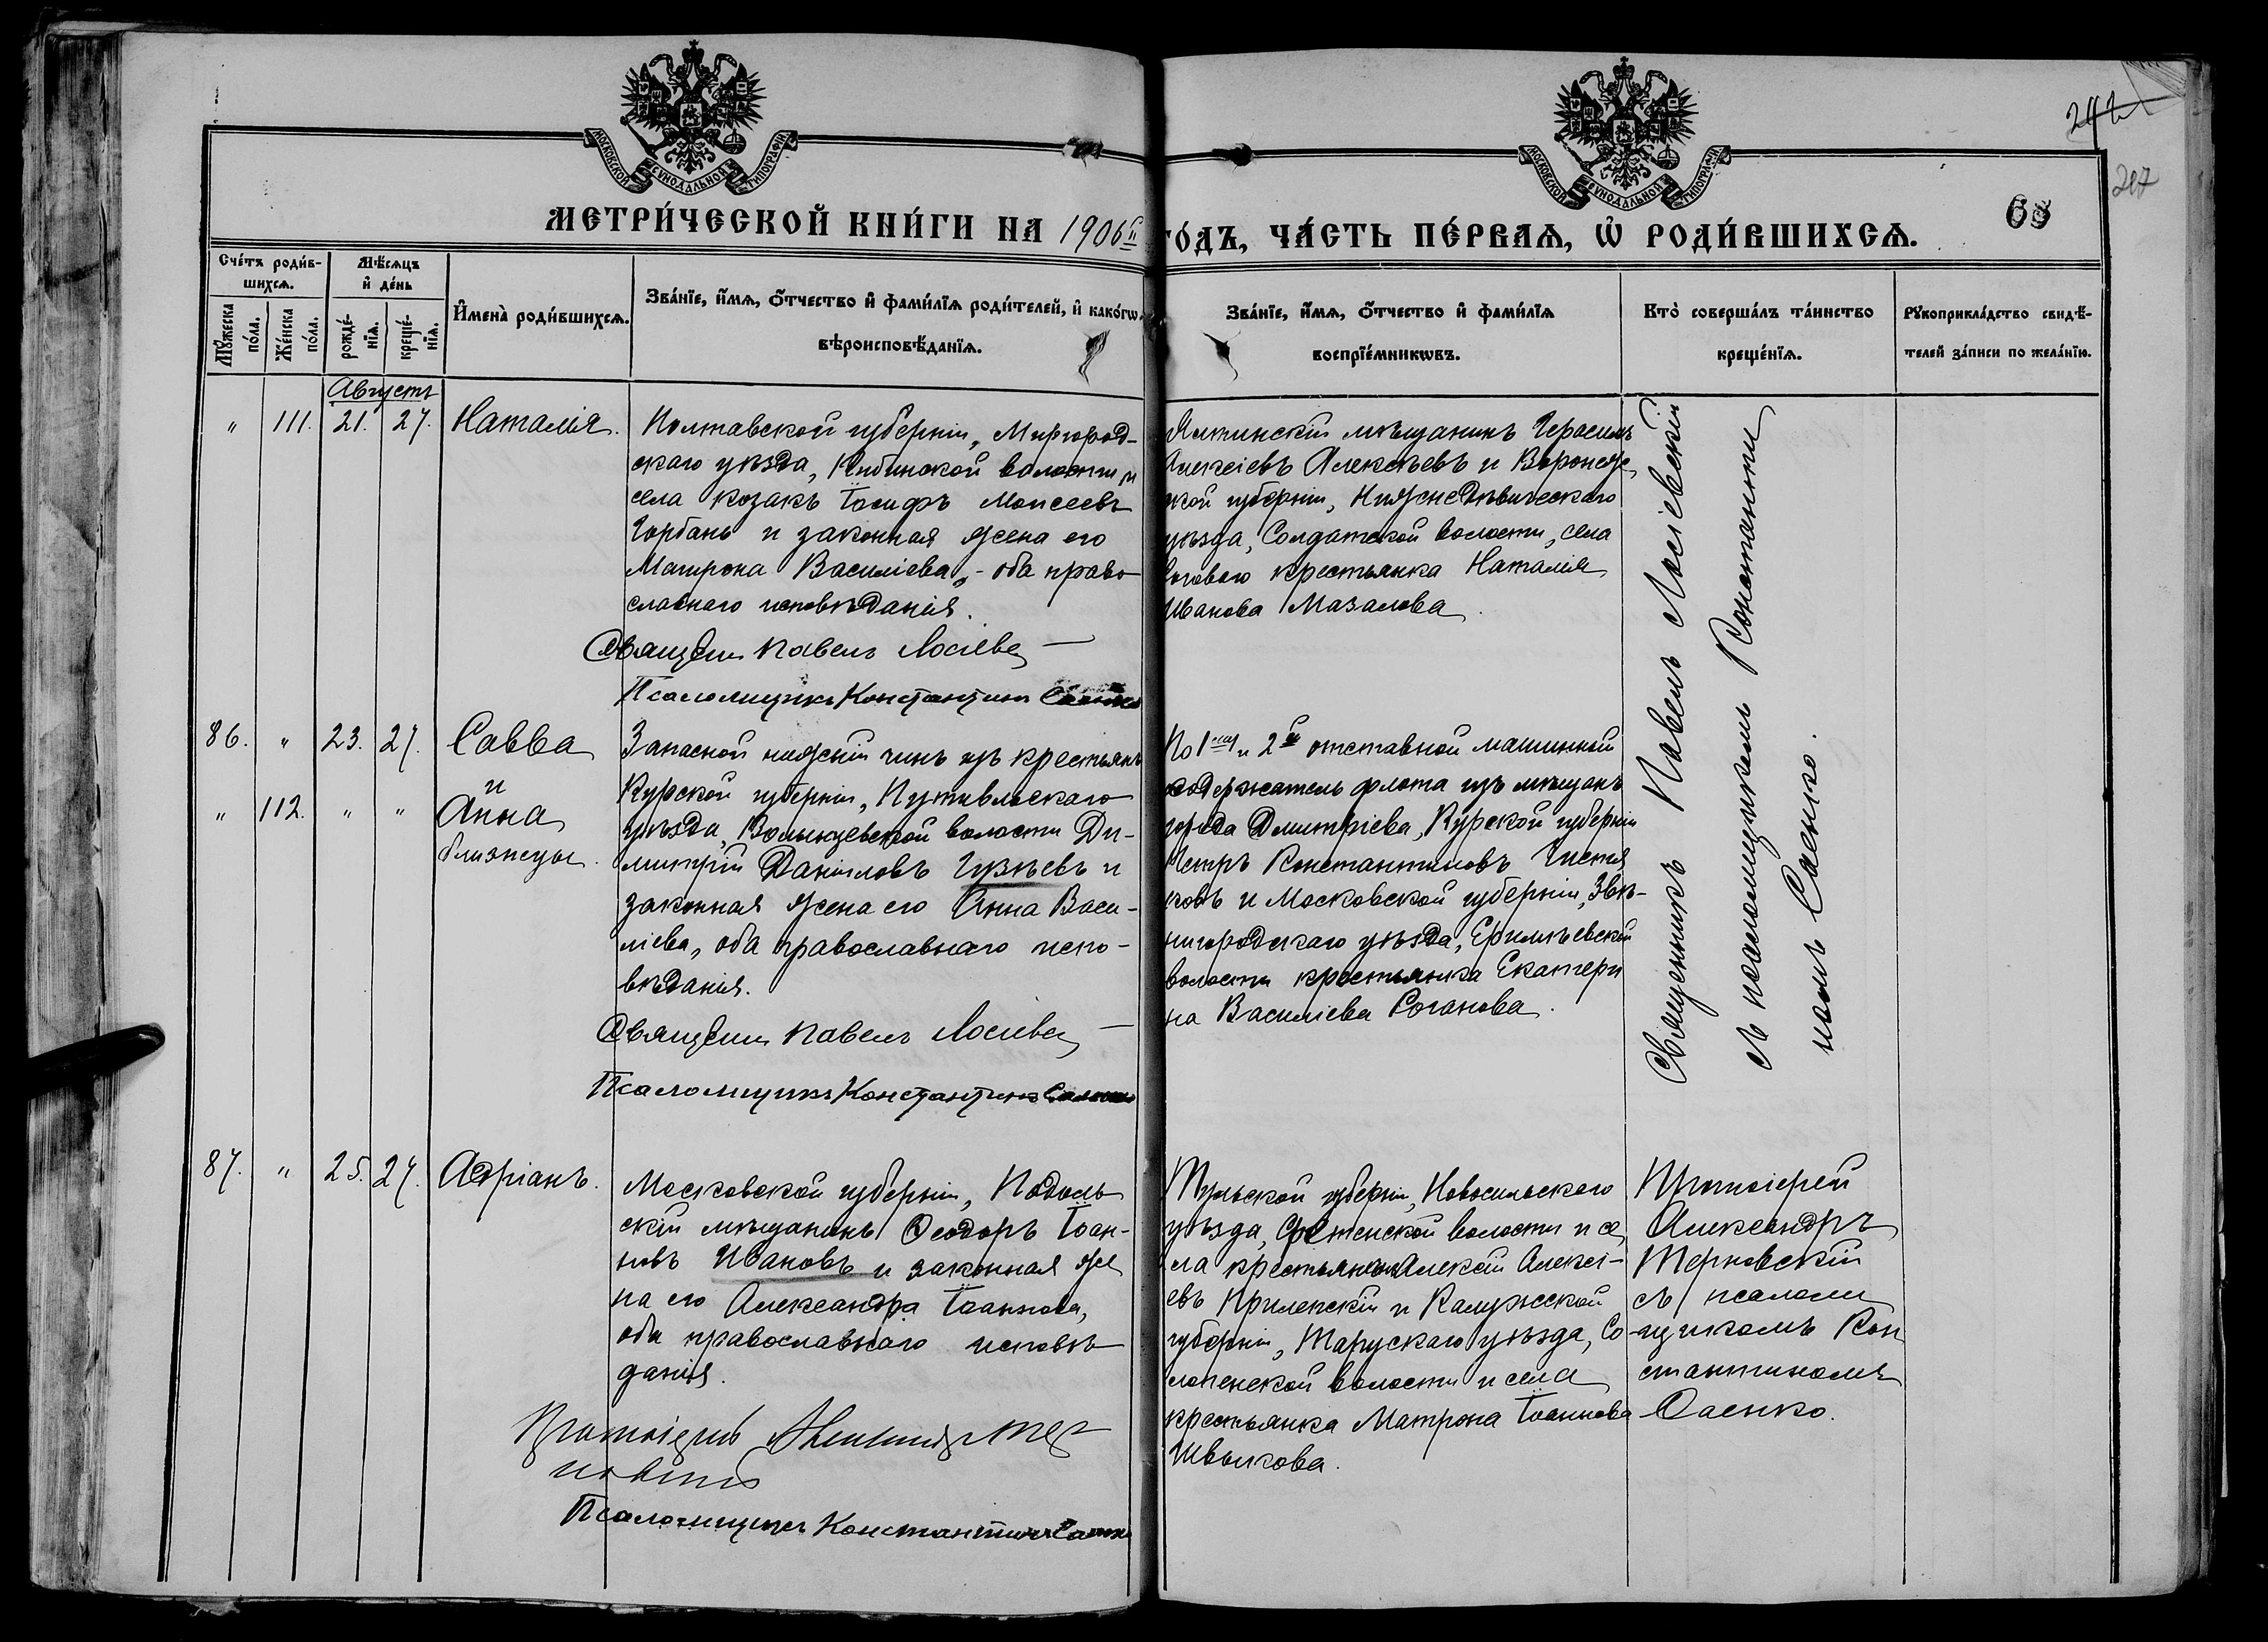 242
247
63
МОСКОВСКОЙ СѴНОДАЛЬНОЙ ТИПОГРАФІИ
МОСКОВСКОЙ СѴНОДАЛЬНОЙ ТИПОГРАФІИ
МЕТРИ́ЧЕСКОЙ КНИ́ГИ НА 1906й
ГО́ДЪ, ЧА́СТЬ ПЕ́РВАѦ, Ѡ҆ РОДИ́ВШИХСѦ.
Сче́тъ роди́в-
шихсѧ.
Мѣ́сѧцъ
и҆ де́нь
Мꙋ́жеска
по́ла.
Же́нска
по́ла.
рожде́-
нїѧ.
креще́-
нїѧ.
И҆мена̀ роди́вшихсѧ.
Зва́нїе, и҆́мѧ, ѻ҆́тчество и҆ фами́лїѧ роди́телей, и҆ како́гѡ
вѣроисповѣ́данїѧ.
Зва́нїе, и҆́мѧ, ѻ҆́тчество и҆ фами́лїѧ
воспрїе́мникѡвъ.
Кто̀ соверша́лъ та́инство
креще́нїѧ.
Рꙋкоприкла́дство свидѣ́-
телей за́писи по жела́нїю.
Августъ
" 111. 21. 27. Наталія.
Полтавской губерніи, Миргород-
скаго уѣзда, Кибинской волости и
села козакъ Іосифъ Моисеевъ
Горбань и законная жена его
Матрона Василіева, - оба право
славнаго исповѣданія.
Священ. Павелъ Лосіевск
Псаломщикъ Константинъ Саенко
Ялтинскій мѣщанинъ Герасимъ
Алексіевъ Алексѣевъ и Воронеж
ской губерніи, Нижнедѣвическаго
уѣзда, Солдатской волости, села
крестьянка Наталія
Иванова Мазалова.
Священникъ Павелъ Лосіевскій
съ псаломщикомъ Константи
номъ Саенко.
86. " 23. 27. Савва
и
" 112. " " Анна
близнецы.
Запасной нижній чинъ изъ крестьянъ
Курской губерніи, Путивльскаго
уѣзда, Волынцевской волости Ди-
митрій Даніиловъ Гузѣевъ и
законная жена его Анна Васи-
ліева, оба православнаго испо-
вѣданія.
Священ. Павелъ Лосіевск
Псаломщикъ Константинъ Саенко
По 1му и 2й отставной машинный
содержатель флота изъ мѣщанъ
города Дмитріева, Курской губерніи
Петръ Константиновъ Чистя
ковъ и Московской губерніи, Зве-
нигородскаго уѣзда, Еремѣевской
волости крестьянка Екатери
на Василіева Роганова.
87. " 25. 27. Адріанъ.
Московской губерніи, Подоль
скій мѣщанинъ Ѳеодоръ Іоан-
новъ Ивановъ и законная же
на его Александра Іоаннова,
оба православнаго исповѣ
данія.
Протоіерей Александръ Тер
новскій
Псаломщикъ Константинъ Саенко
Тульской губерніи, Новосильскаго
уѣзда, Срѣтенской волости и се
ла крестьянинъ Алексій Алексі-
евъ Приленскій и Калужской
губерніи, Тарускаго уѣзда, Со
лопенской волости и села
крестьянка Матрона Іоаннова
Швыкова.
Протоіерей
Александръ
Терновскій
съ псалом
щикомъ Кон
стантиномъ
Саенко.